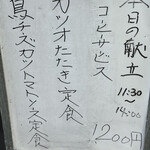 本日の献立
11:30
〜
14:00
コヒサービス
カツオたたき定食
1,200円
鳥チーズカツトマトソース定食